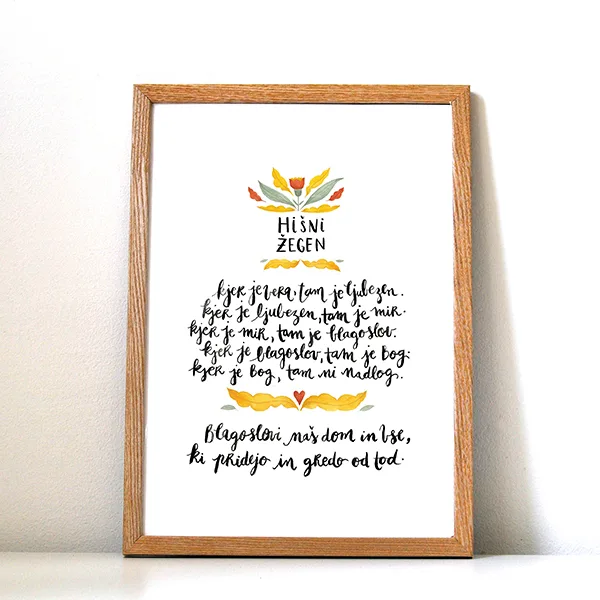 HiŠNi
ŽEGEN
kjer je vera, tam je ljubezen.
kjer je ljubezen, tam je mir.
kjer je mir, tam je blagoslov.
kjer je blagoslov, tam je Bog.
kjer je Bog, tam ni nadlog.
Blagoslovi naš dom in vse,
ki pridejo in gredo od tod.